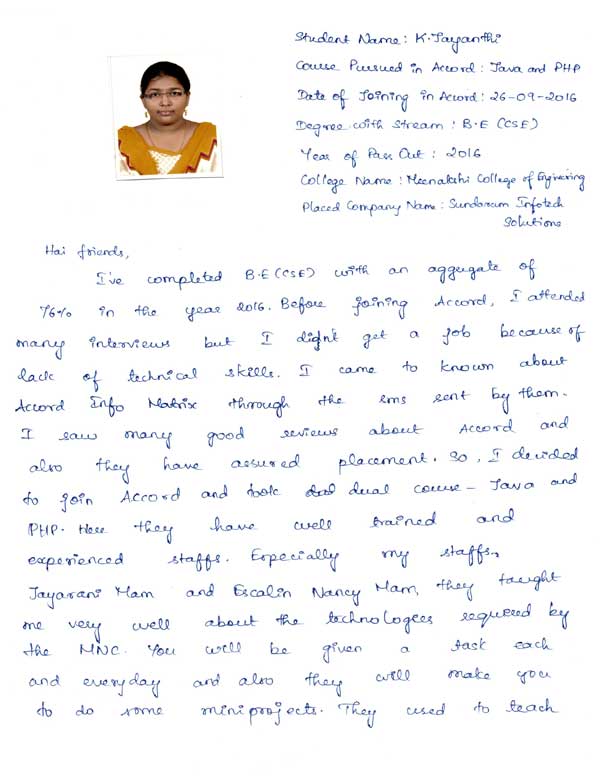 Student Name : K. Jayanthi
Course Pursued in Accord : Java and PHP
Date of Joining in Accord : 26-09-2016
Degree with Stream : B.E (CSE)
Year of Pass Out : 2016
College Name : Meenakshi College of Engineering
Placed Company Name : Sundaram Infotech
Solutions
Hai friends,
I've completed B.E (CSE) with an aggregate of
76% in the year 2016. Before joining Accord, I attended
many interviews but I didn't get a job because of
lack of technical skills. I came to known about
Accord Info Matrix through the sms sent by them.
I saw many good reviews about Accord and
also they have assured placement. So, I decided
to join Accord and took dual course - Java and
PHP. Here they have well trained and
experienced staffs. Especially my staffs,
Jayarani Mam and Escalin Nancy Mam, they taught
me very well about the technologies required by
the MNC. You will be given a task each
and everyday and also they will make you
to do some miniprojects. They used to teach